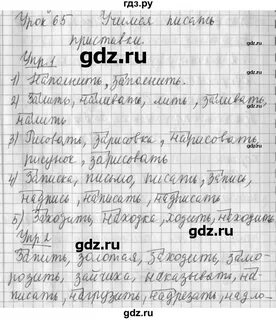 гдз.ру
Урок 65 Учимся писать
приставки.
Упр.1
1) Наполнить, заполнить.
2) Залить, наливать, лить, заливать,
налить
3) Рисовать, зарисовка, нарисовать,
рисунок, зарисовать
4) Записка, письмо, писать, запись,
надпись, написать, надписать
5) Заходить, находка, ходить, находить.
Упр.2
Запить, золотая, заходить, замо-
розить, зайчиха, наказывать, на-
писать, нагрузить, надрезать, надло-
gdz.ru
gdz.ru
gdz.ru
gdz.ru
gdz.ru